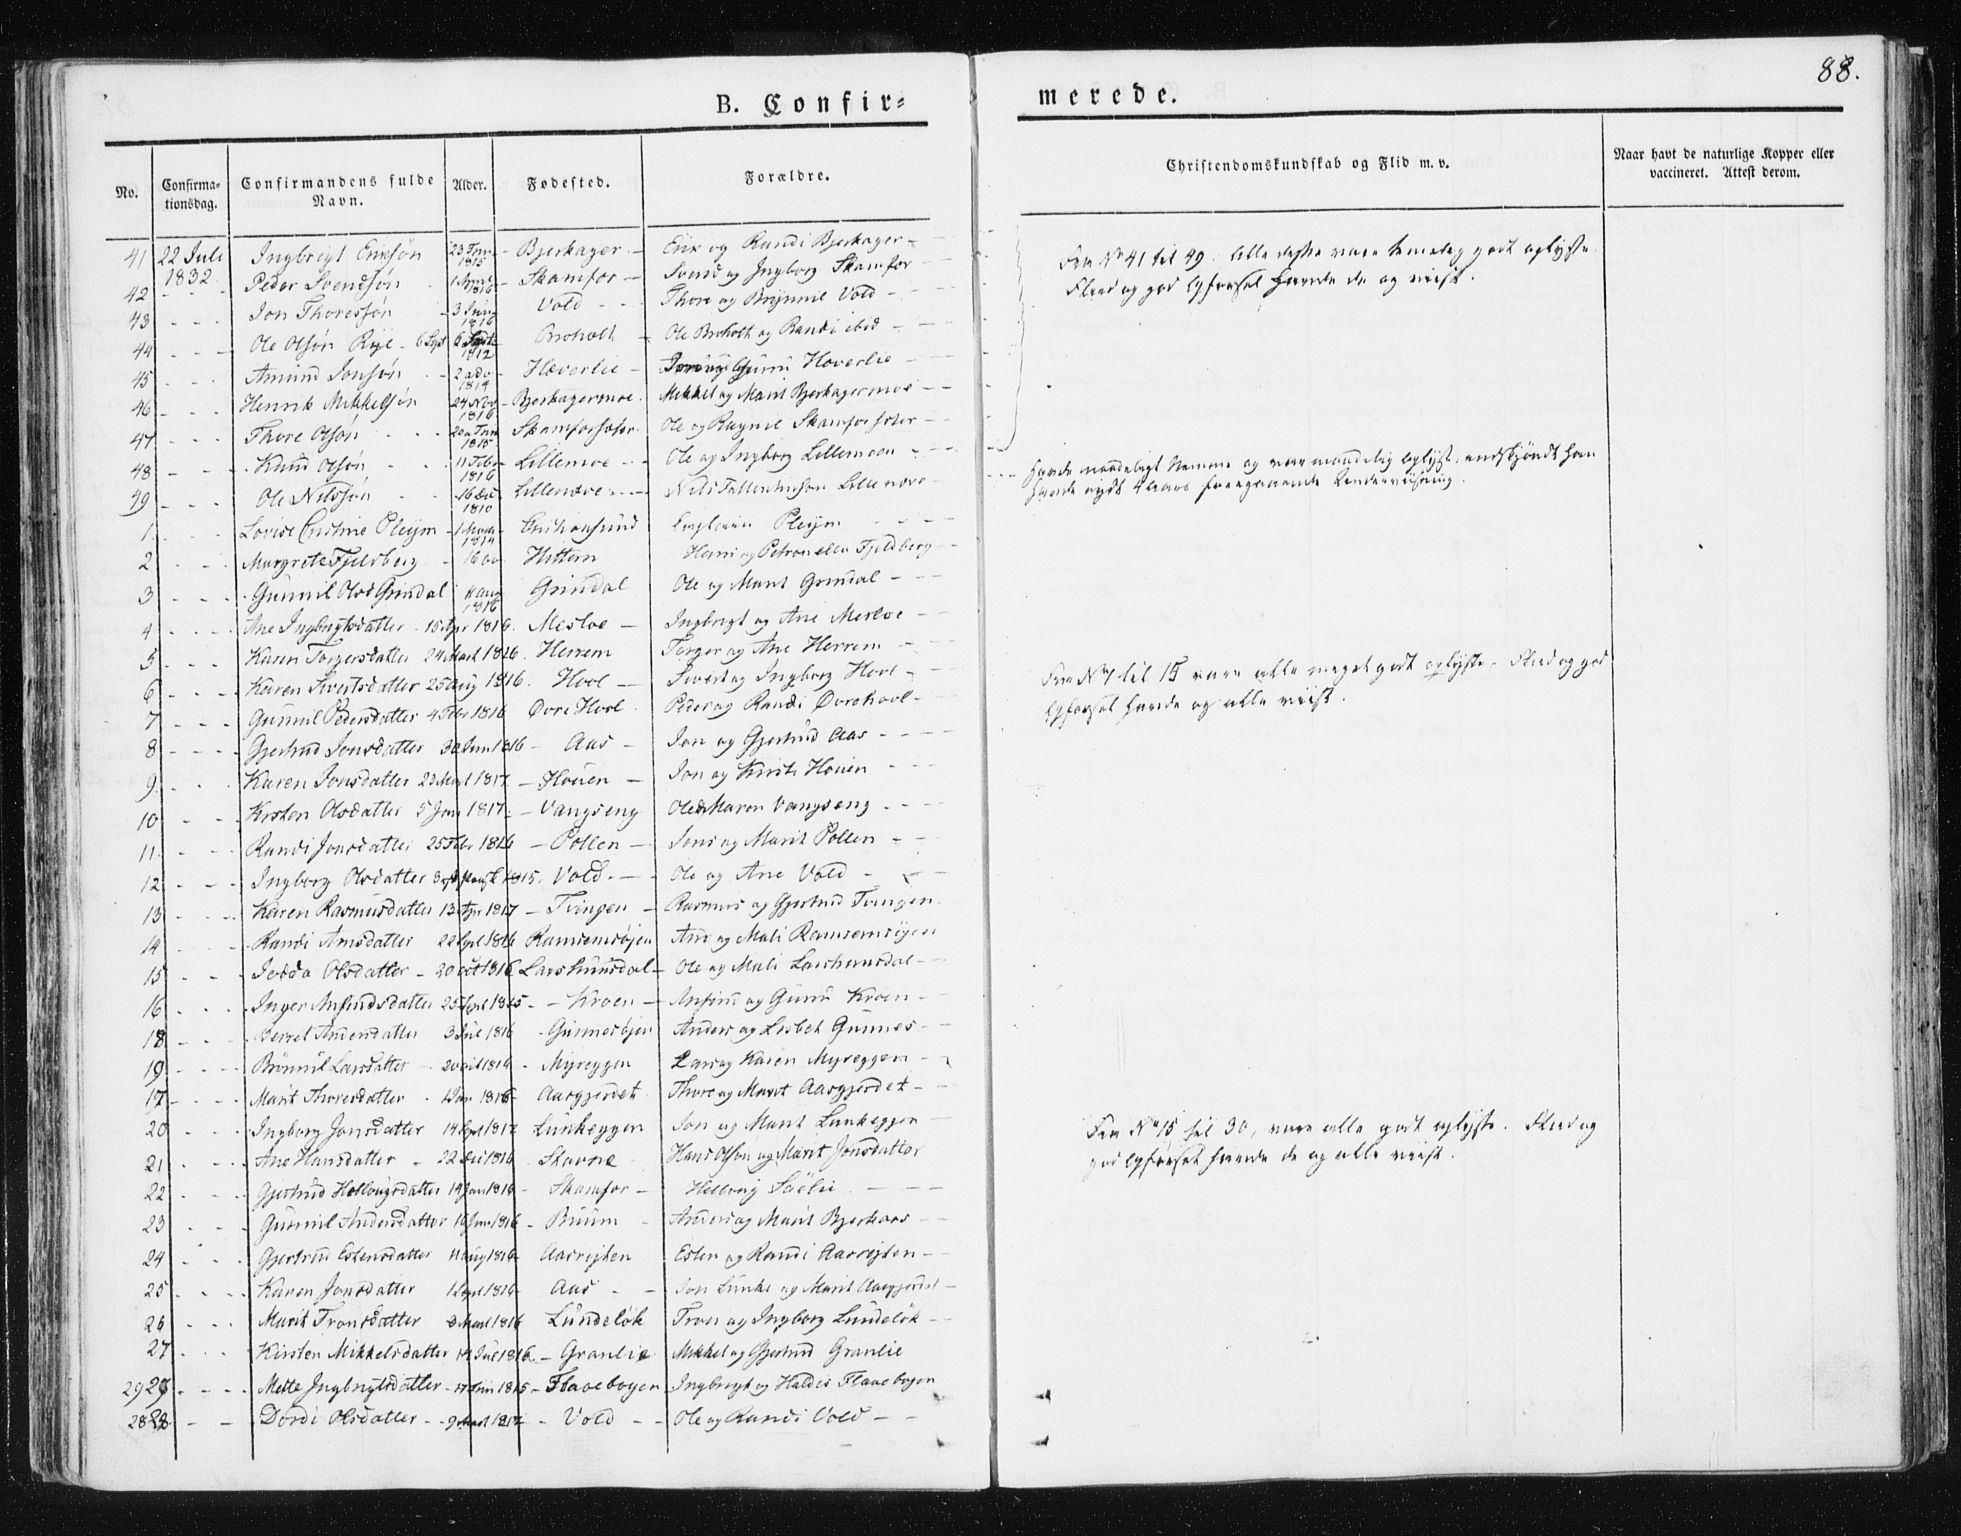 88.
B. Confir=
merede.
No. Confirma-tionsdag. Confirmandens fulde Navn. Alder. Fødested. Forældre. Christendomskundskab og Flid m. v. Naar havt de naturlige Kopper eller vaccineret. Attest derom.
41 22 Juli 1832 Ingbrigt Eriksøn 1815 Bjerkager Erik og Randi Bjerkager
42 Peder Svendsøn 1816 Skamfor Svend og Ingborg Skamfor
43 Jon Thoressøn 3 1816 Vold Thore og Brynnil Vold
44 Ole Olsøn Rye 1812 Broholt Ole Broholt og Randi ibid
45 Amund Jonsøn 2 1814 Hæverlie Gunni Hoverlie
46 Henrik Mikkelsøn 24 Nov 1816 Bjerkagermoe Mikkel og Marit Bjerkagermoe
47 Thore Olsøn 1815 Skamforsæter Ole og Ragnil Skamforsæter
48 Knud Olsøn 11 Febr 1816 Lillemoe Ole og Ingborg Lillemoen
49 Ole Nilssøn 1810 Lillenæve Nils Lillenæve
1 Lovise Cristine Pleym 1814 Christiansund Pleym
2 Margrete Fjeldberg Hittern og Petronelle Fjeldberg
3 Gunnil Olsd Grindal 1816 Grindal Ole og Marit Grindal
4 Ane Ingbrigtsdatter 15 Apr 1816 Mesloe Ingbrigt og Ane Mesloe
5 Karen Torgersdatter 24 Mart 1816 Herrem Torger og Ane Herrem
6 Karen Sivertsdatter 25 Aug 1816 Hovl Sivert og Ingborg Hovl
7 Gunnil Pedersdatter 4 Febr 1816 Øvre Hovl Peder og Randi Øvrehovl
8 Gjertrud Jonsdatter 30 Jun 1816 Aas Jon og Gjertrud Aas
9 Karen Jonsdatter 23 1817 Houen Jon og Kirsti Houen
10 Kirsten Olsdatter 5 Jan 1817 Vangseng Ole & Maren Vangseng
11 Randi Jonsdatter 25 Febr 1816 Pollen Jens og Marit Pollen
12 Ingborg Olsdatter 1815 Vold Ole og Ane Vold
13 Karen Rasmusdatter 13 Apr 1817 Tvingen Rasmus og Gjertrud Tvingen
14 Randi Arnsdatter 22 Sept 1816 Ramsemsøjen Arn og Mali Ramsemsøjen
15 Jodda Olsdatter 20 oct 1816 Larshuusdal Ole og Mali Larshuusdal
16 Inger Anfindsdatter 25 Sept 1815 Kroen Anfind og Gunni Kroen
18 Berret Andersdatter 3 Jul 1816 Gunnesøjen Anders og Lisbet Gunnes
19 Brønnil Larsdatter Myreggen Lars og Karen Myreggen
17 Marit Thoresdatter 1 Jan 1816 Aasgjerdet Thore og Marit Aasgjerdet
20 Ingborg Jonsdatter 14 Sept 1817 Lunkeggen Jon og Marit Lunkeggen
21 Ane Hansdatter 22 Dec 1816 Stavne Hans Olson og Marit Jonsdatter
22 Gjertrud Hellvigsdatter 14 Jan 1816 Skamfor Hellvig Sæter
23 Gunnil Andersdatter 16 Jun 1816 Bruum Anders og Marit Bjerkaas
24 Gjertrud Estensdatter 11 Aug 1816 Aasrejten Esten og Randi Aasrejten
25 Karen Jonsdatter 1 Sept 1816 Aas Jon Lunke og Marit Aasgjerdet
26 Marit Tronsdatter 3 Mart 1816 Lundeløk Tron og Ingborg Lundeløk
27 Kirsten Mikkelsdatter 14 Jul 1816 Granlie Mikkel og Gjertrud Granlie
29 Mette Ingbrigtsdatter 17 Jun 1815 Flaaebogen Ingbrigt og Haldis Flaaebogen
28 Dordi Olsdatter 9 Mart 1817 Vold Ole og Randi Vold
Fra No 41 til 49. Alle disse vare temelig godt oplyste.
Fliid og god Opførsel havde de og viist.
havde maadeligt Nemme og var maadelig oplyst, endskjøndt han
havde nydt Underviisning.
Fra No 1 til 15 vare alle meget godt oplyste. Fliid og god
Opførsel havde og alle viist.
Fra No 15 til 30, vare alle godt oplyste. Fliid og
god Opførsel havde de og alle viist.